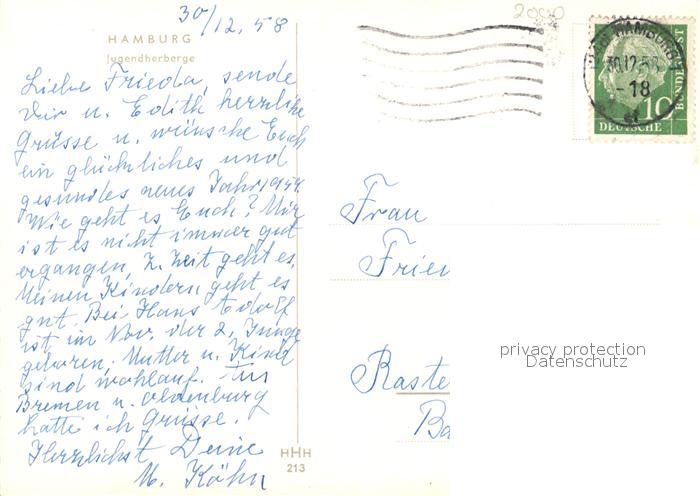 30/12.58
HAMBURG
Jugendherberge
Liebe Frieda, sende
Dir u. Edith herzliche
Grüsse u. wünsche Euch
ein glückliches und
gesundes neues Jahr 1959.
Wie geht es Euch? Mir
ist es nicht immer gut
ergangen, z. Zeit geht es.
Meinen Kindern geht es
gut. Bei Hans Adolf
ist im Nov. der 2. Junge
geboren, Mutter u. Kind
sind wohlauf. Aus
Bremen u. Oldenburg
hatte ich Grüsse.
Herzlichst Deine
M. Köhn
HHH
213
2000
HAMBURG
30.12.58
-18
10
DEUTSCHE
BUNDESPOST
Frau
Frie
Raste
Ba
privacy protection
Datenschutz